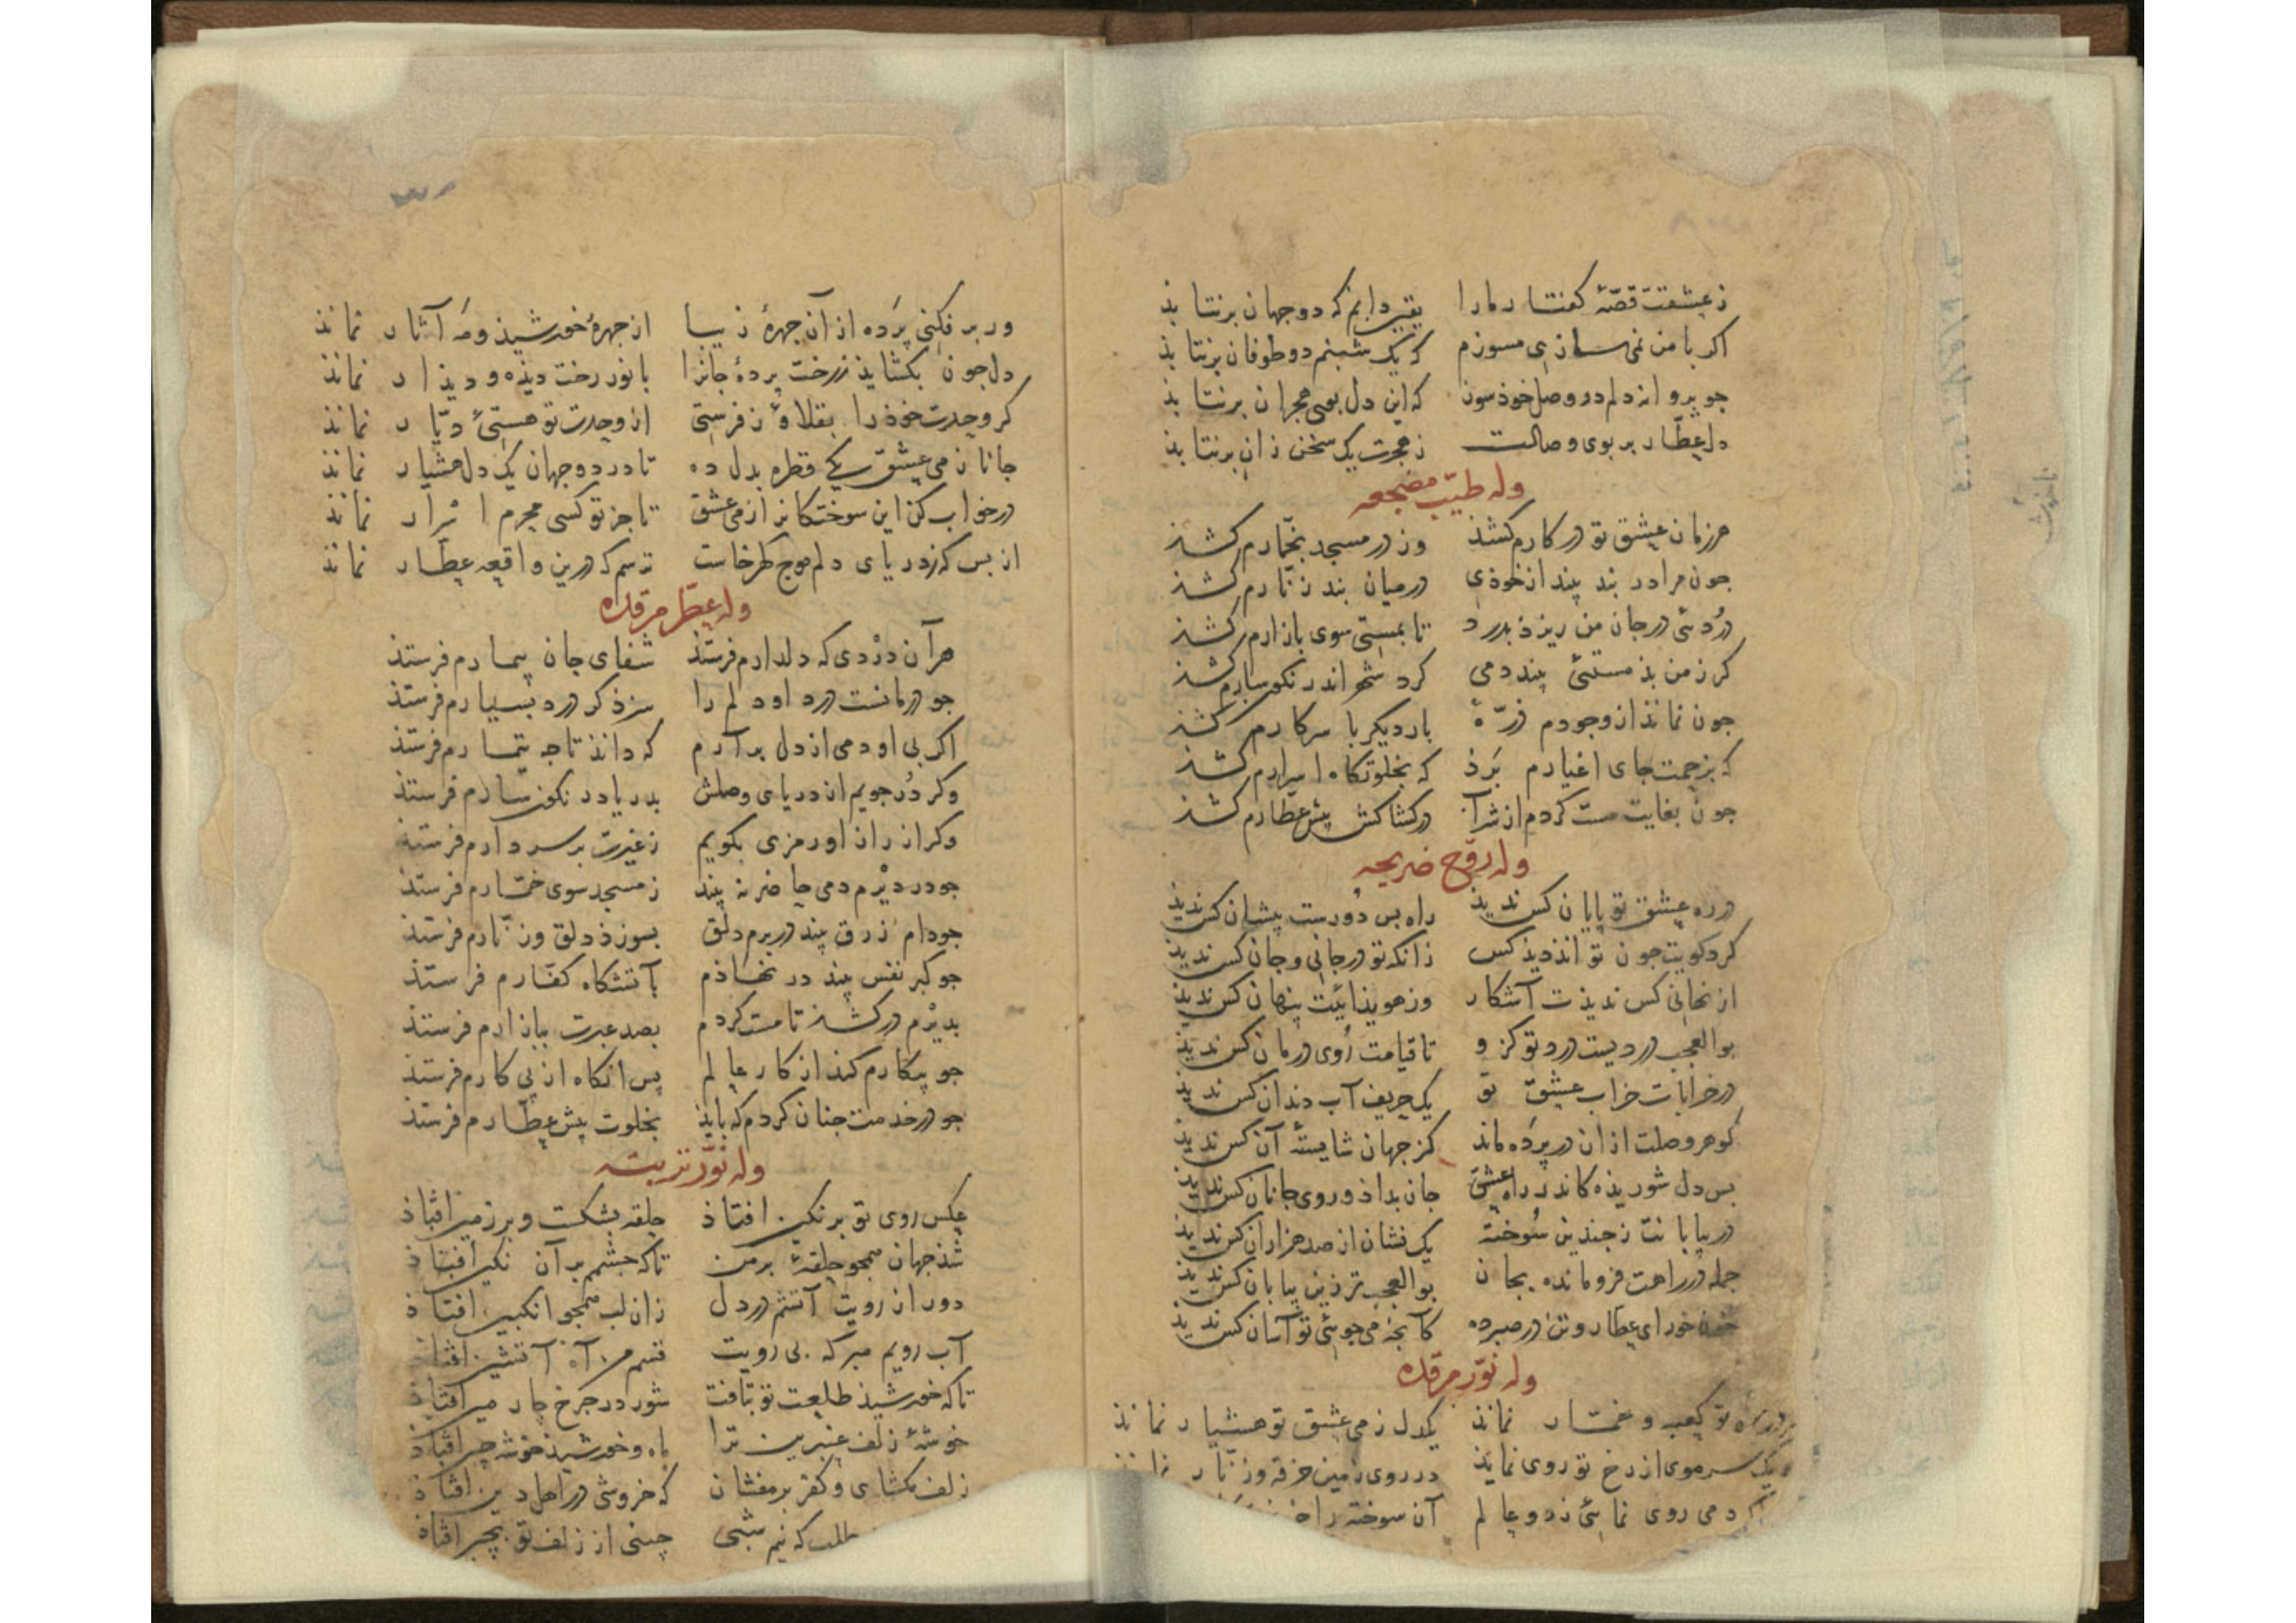 ز عشقت قصّهٔ کفتار ما را یقین دانم که دو جهان برنتابذ
اکر با من نمی سازی مسوزم که یک شبنم دو طوفان برنتابذ
جو پروانه دلم در وصل خوذ سوز که این دل بوی هجران برنتابذ
دل عطّار بر بوی وصالت ز هجرت یک سخن زان برنتابذ
وله طیّب مضجعه
هر زمان عشق تو در کارم کشذ وز در مسجد بخمّارم کشذ
جون مرا در بند بیند از خوذی در میان بند زنّارم کشذ
دُردئی در جان من ریزذ بدرد تا بمستی سوی بازارم کشذ
کر ز من بذ مستئی بیند دمی کرد شهر اندر نکوسارم کشذ
جون نمانذ از وجودم ذرّهٔ بار دیکر با سر کارم کشذ
که بزحمت جای اغیارم بَرذ که بخلوتکاه اسرارم کشذ
جون بغایت مست کردم از شراب در کشاکش پیش عطّارم کشذ
وله روّح ضریحه
در ره عشق تو پایان کس ندیذ راه بس دُورست پیشان کس ندیذ
کرد کویت جون تواند دیذ کس زانکه تو در جانی و جان کس ندیذ
از نهانی کس ندیذت آشکار وز هویذائیت پنهان کس ندیذ
بو العجب دردیست درد تو کز و تا قیامت رُوی درمان کس ندیذ
در خرابات خراب عشق تو یک حریف آب دندان کس ندیذ
کوهر وصلت از ان در پَرده ماند کز جهان شایستهٔ آن کس ندیذ
بس دل شوریذه کاندر راه عشق جان بداذ و روی جانان کس ندیذ
در بیابانت ز جندین سُوخته یک نشان از صد هزاران کس ندیذ
جمله در راهت فرو مانده بجان بو العجب تر زین بیابان کس ندیذ
خون خور ای عطار و تن در صبر ده کآنجه می جوئی تو آسان کس ندیذ
وله نوّر مرقده
در راه تو کعبه و خمّار نمانذ یکدل ز می عشق تو هشیار نمانذ
یک سر موی از رخ تو روی نمایذ در روی زمین خرقه و زنّار
کر دمی روی نمائی ز دو عالم آن سوخته را
ور برفکنی پَرده از آن جهرهٔ زیبا از جهرهٔ خورشیذ و مَه آثار نمانذ
دل جون بکشایذ ز رخت پردهٔ جانرا با نور رخت دیذه و دیذار نمانذ
کر وحدت خوذ را بقلاوز فرستی از وحدت تو هستئ دیّار نمانذ
جانا ز می عشق یکی قطره بدل ده تا در دو جهان یک دل هشیار نمانذ
در خواب کن این سوختکانرا ز می عشق تا جز تو کسی محرم اسْرار نمانذ
از بس که ز دریای دلم موج کهر خاست ترسم که درین واقعه عطّار نمانذ
وله عطّر مرقده
هر آن دَرْدی که دلدارم فرستذ شفای جان بیمارم فرستذ
جو درمانست درد او دلم را سزذ کر درد بسیارم فرستذ
اکر بی او دمی از دل برآرم که دانذ تا جه تیمارم فرستذ
وکر دُر جویم از دریای وصلش بدریا در نکونسارم فرستذ
وکر از راز او رمزی بکویم ز غیرت بر سر دارم فرستذ
جو در دیْرم دمی حاضر نه بیند ز مسجد سوی خمّارم فرستذ
جو دام زرق بیند در برم دلق بسوزذ دلق و زنّارم فرستذ
جو کبر نفس بیند در نهاذم بآتشکاه کفّارم فرستذ
بدیْرم درکشذ تا مست کردم بصد عبرت ببازارم فرستذ
جو بیکارم کند از کار عالم پس انکاه از پی کارم فرستذ
جو در خدمت جنان کردم که بایذ بخلوت پیش عطّارم فرستذ
وله نوّر تربته
عکس روی تو بر نکین افتاذ حلقه بشکست و بر زمین افتاذ
شذ جهان همجو حلقهٔ بر من تا که جشمم بر آن نکین افتاذ
دور از رویت آتشم در دل زان لب همجو انکبین افتاذ
آب رویم مبر که بی رویت قسم من آه آتشین افتاذ
تا که خورشیذ طلعت تو بتافت شور در جرخ جارمین افتاذ
خوشهٔ زلف عنبرین ترا ماه و خورشیذ خوشه چین افتاذ
زلف مکشای و کفر برمفشان که خروشی در اهل دین افتاذ
طلب که نیم شبی چینی از زلف تو بچین افتاذ